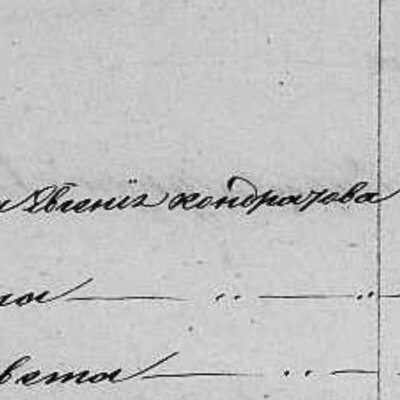 и Евгенія кондратова
на — ·· — ··
вета — ·· —